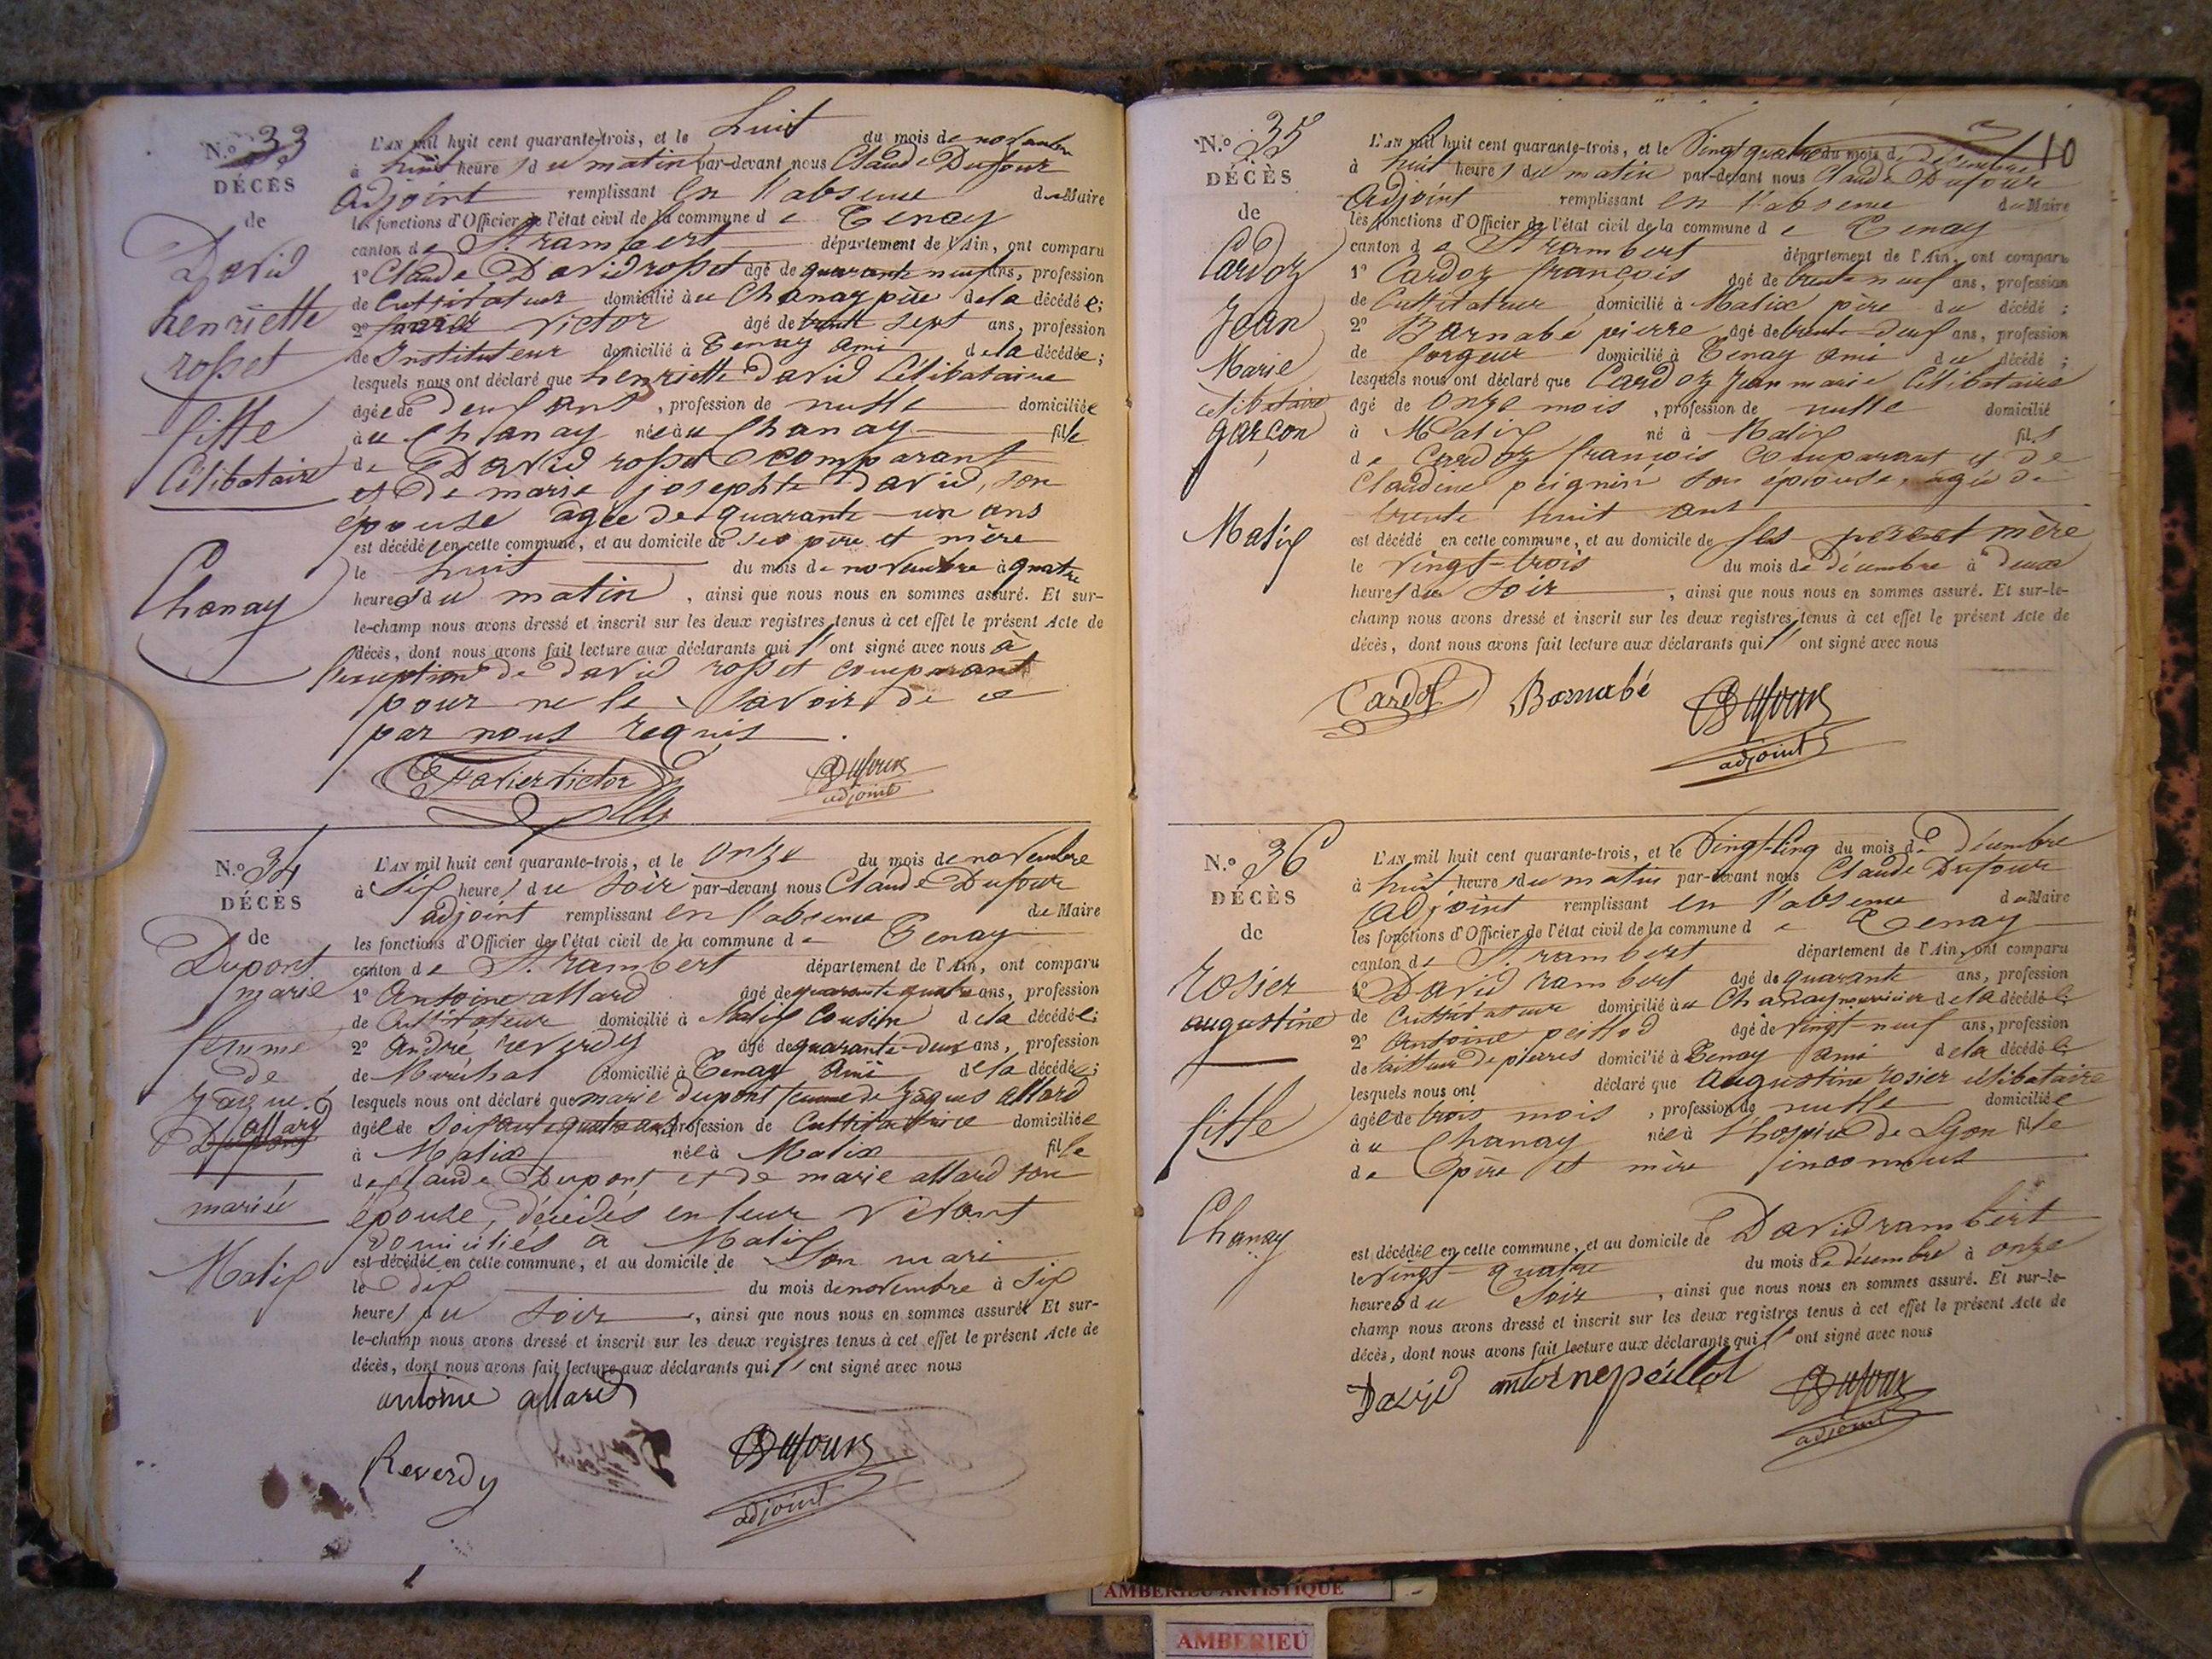 N.º 33
DÉCÈS
de
David
henriette
rosset
fille
Célibataire
Chanay
L'AN mil huit cent quarante-trois, et le huit du mois de novembre
à huit heures du matin par-devant nous Claude Dufour
adjoint remplissant en l'absence du Maire
les fonctions d'Officier de l'état civil de la commune de Tenay
canton de St. rambert département de l'Ain, ont comparu
1º Claude David rosset âgé de quarante neuf ans, profession
de Cultivateur domicilié à u Chanay père de la décédée;
2º Victor âgé de trente sept ans, profession
de Instituteur domicilié à Tenay ami de la décédée;
lesquels nous ont déclaré que henriette David Célibataire
âgée de deux ans, profession de nulle domiciliée
à u Chanay née à u Chanay fille
de David rosset comparant
et de marie josephte David, son
épouse âgée de quarante-un ans
est décédé en cette commune, et au domicile de ses père et mère
le huit du mois de novembre à quatre
heures du matin, ainsi que nous nous en sommes assuré. Et sur-
le-champ nous avons dressé et inscrit sur les deux registres tenus à cet effet le présent Acte de
décès, dont nous avons fait lecture aux déclarants qui l' ont signé avec nous à
l'exception de David rosset comparant
pour ne le savoir de ce
par nous requis
Favier victor Dufour
adjoint
N.º 34
DÉCÈS
de
Dupont
marie
femme
de
Jaques
allard
Dupont
mariée
Malix
L'AN mil huit cent quarante-trois, et le onze du mois de novembre
à six heures du soir par-devant nous Claude Dufour
adjoint remplissant en l'absence du Maire
les fonctions d'Officier de l'état civil de la commune de Tenay
canton de St. rambert département de l'Ain, ont comparu
1º Antoine allard âgé de quarante quatre ans, profession
de Cultivateur domicilié à Malix Cousin de la décédée;
2º André reverdy âgé de quarante-deux ans, profession
de Maréchal domicilié à Tenay Ami de la décédée;
lesquels nous ont déclaré que marie dupont femme de Jaques allard
âgée de Soixante quatre ans, profession de Cultivatrice domiciliée
à Malix née à Malix fille
de Claude Dupont et de marie allard son
épouse, décédés en leur vivant
domiciliés à Malix
est décédée en cette commune, et au domicile de Son mari
le dix du mois de novembre à six
heures du soir, ainsi que nous nous en sommes assuré. Et sur-
le-champ nous avons dressé et inscrit sur les deux registres tenus à cet effet le présent Acte de
décès, dont nous avons fait lecture aux déclarants qui l' ont signé avec nous
antoine allard
Reverdy Dufour
adjoint
10
N.º 35
DÉCÈS
de
Cardoz
Jean
Marie
célibataire
garçon
Malix
L'AN mil huit cent quarante-trois, et le Vingt quatre du mois de décembre
à huit heures du matin par-devant nous Claude Dufour
Adjoint remplissant en l'absence du Maire
les fonctions d'Officier de l'état civil de la commune de Tenay
canton de St rambert département de l'Ain, ont comparu
1º Cardoz françois âgé de trente neuf ans, profession
de Cultivateur domicilié à Malix père du décédé;
2º Barnabé pierre âgé de trente-deux ans, profession
de forgeur domicilié à Tenay ami du décédé;
lesquels nous ont déclaré que Cardoz Jean marie Célibataire
âgé de onze mois, profession de nulle domicilié
à Malix né à Malix fils
de Cardoz françois comparant et de
Claudine peignin son épouse, agée de
trente huit ans
est décédé en cette commune, et au domicile de ses pere et mère
le vingt-trois du mois de décembre à deux
heures du soir, ainsi que nous nous en sommes assuré. Et sur-le-
champ nous avons dressé et inscrit sur les deux registres tenus à cet effet le présent Acte de
décès, dont nous avons fait lecture aux déclarants qui l' ont signé avec nous
Cardoz Barnabé Dufour
adjoint
N.º 36
DÉCÈS
de
rosier
augustine
fille
Chanay
L'AN mil huit cent quarante-trois, et le Vingt-Cinq du mois de décembre
à huit heures du matin par-devant nous Claude Dufour
Adjoint remplissant en l'absence du Maire
les fonctions d'Officier de l'état civil de la commune de Tenay
canton de St. rambert département de l'Ain, ont comparu
1º David rambert âgé de quarante ans, profession
de Cultivateur domicilié à u Chanay nourricier de la décédée;
2º Antoine peillod âgé de vingt-neuf ans, profession
de tailleur de pierres domicilié à Tenay ami de la décédée;
lesquels nous ont déclaré que Augustine rosier célibataire
âgée de trois mois, profession de nulle domiciliée
à u Chanay née à l'hospice de Lyon fille
de père et mère inconnus
est décédée en cette commune, et au domicile de David rambert
le vingt-quatre du mois de décembre à onze
heures du soir, ainsi que nous nous en sommes assuré. Et sur-le-
champ nous avons dressé et inscrit sur les deux registres tenus à cet effet le présent Acte de
décès, dont nous avons fait lecture aux déclarants qui l' ont signé avec nous
David antoine peillod Dufour
adjoint
AMBERIEU ARTISTIQUE
AMBERIEU